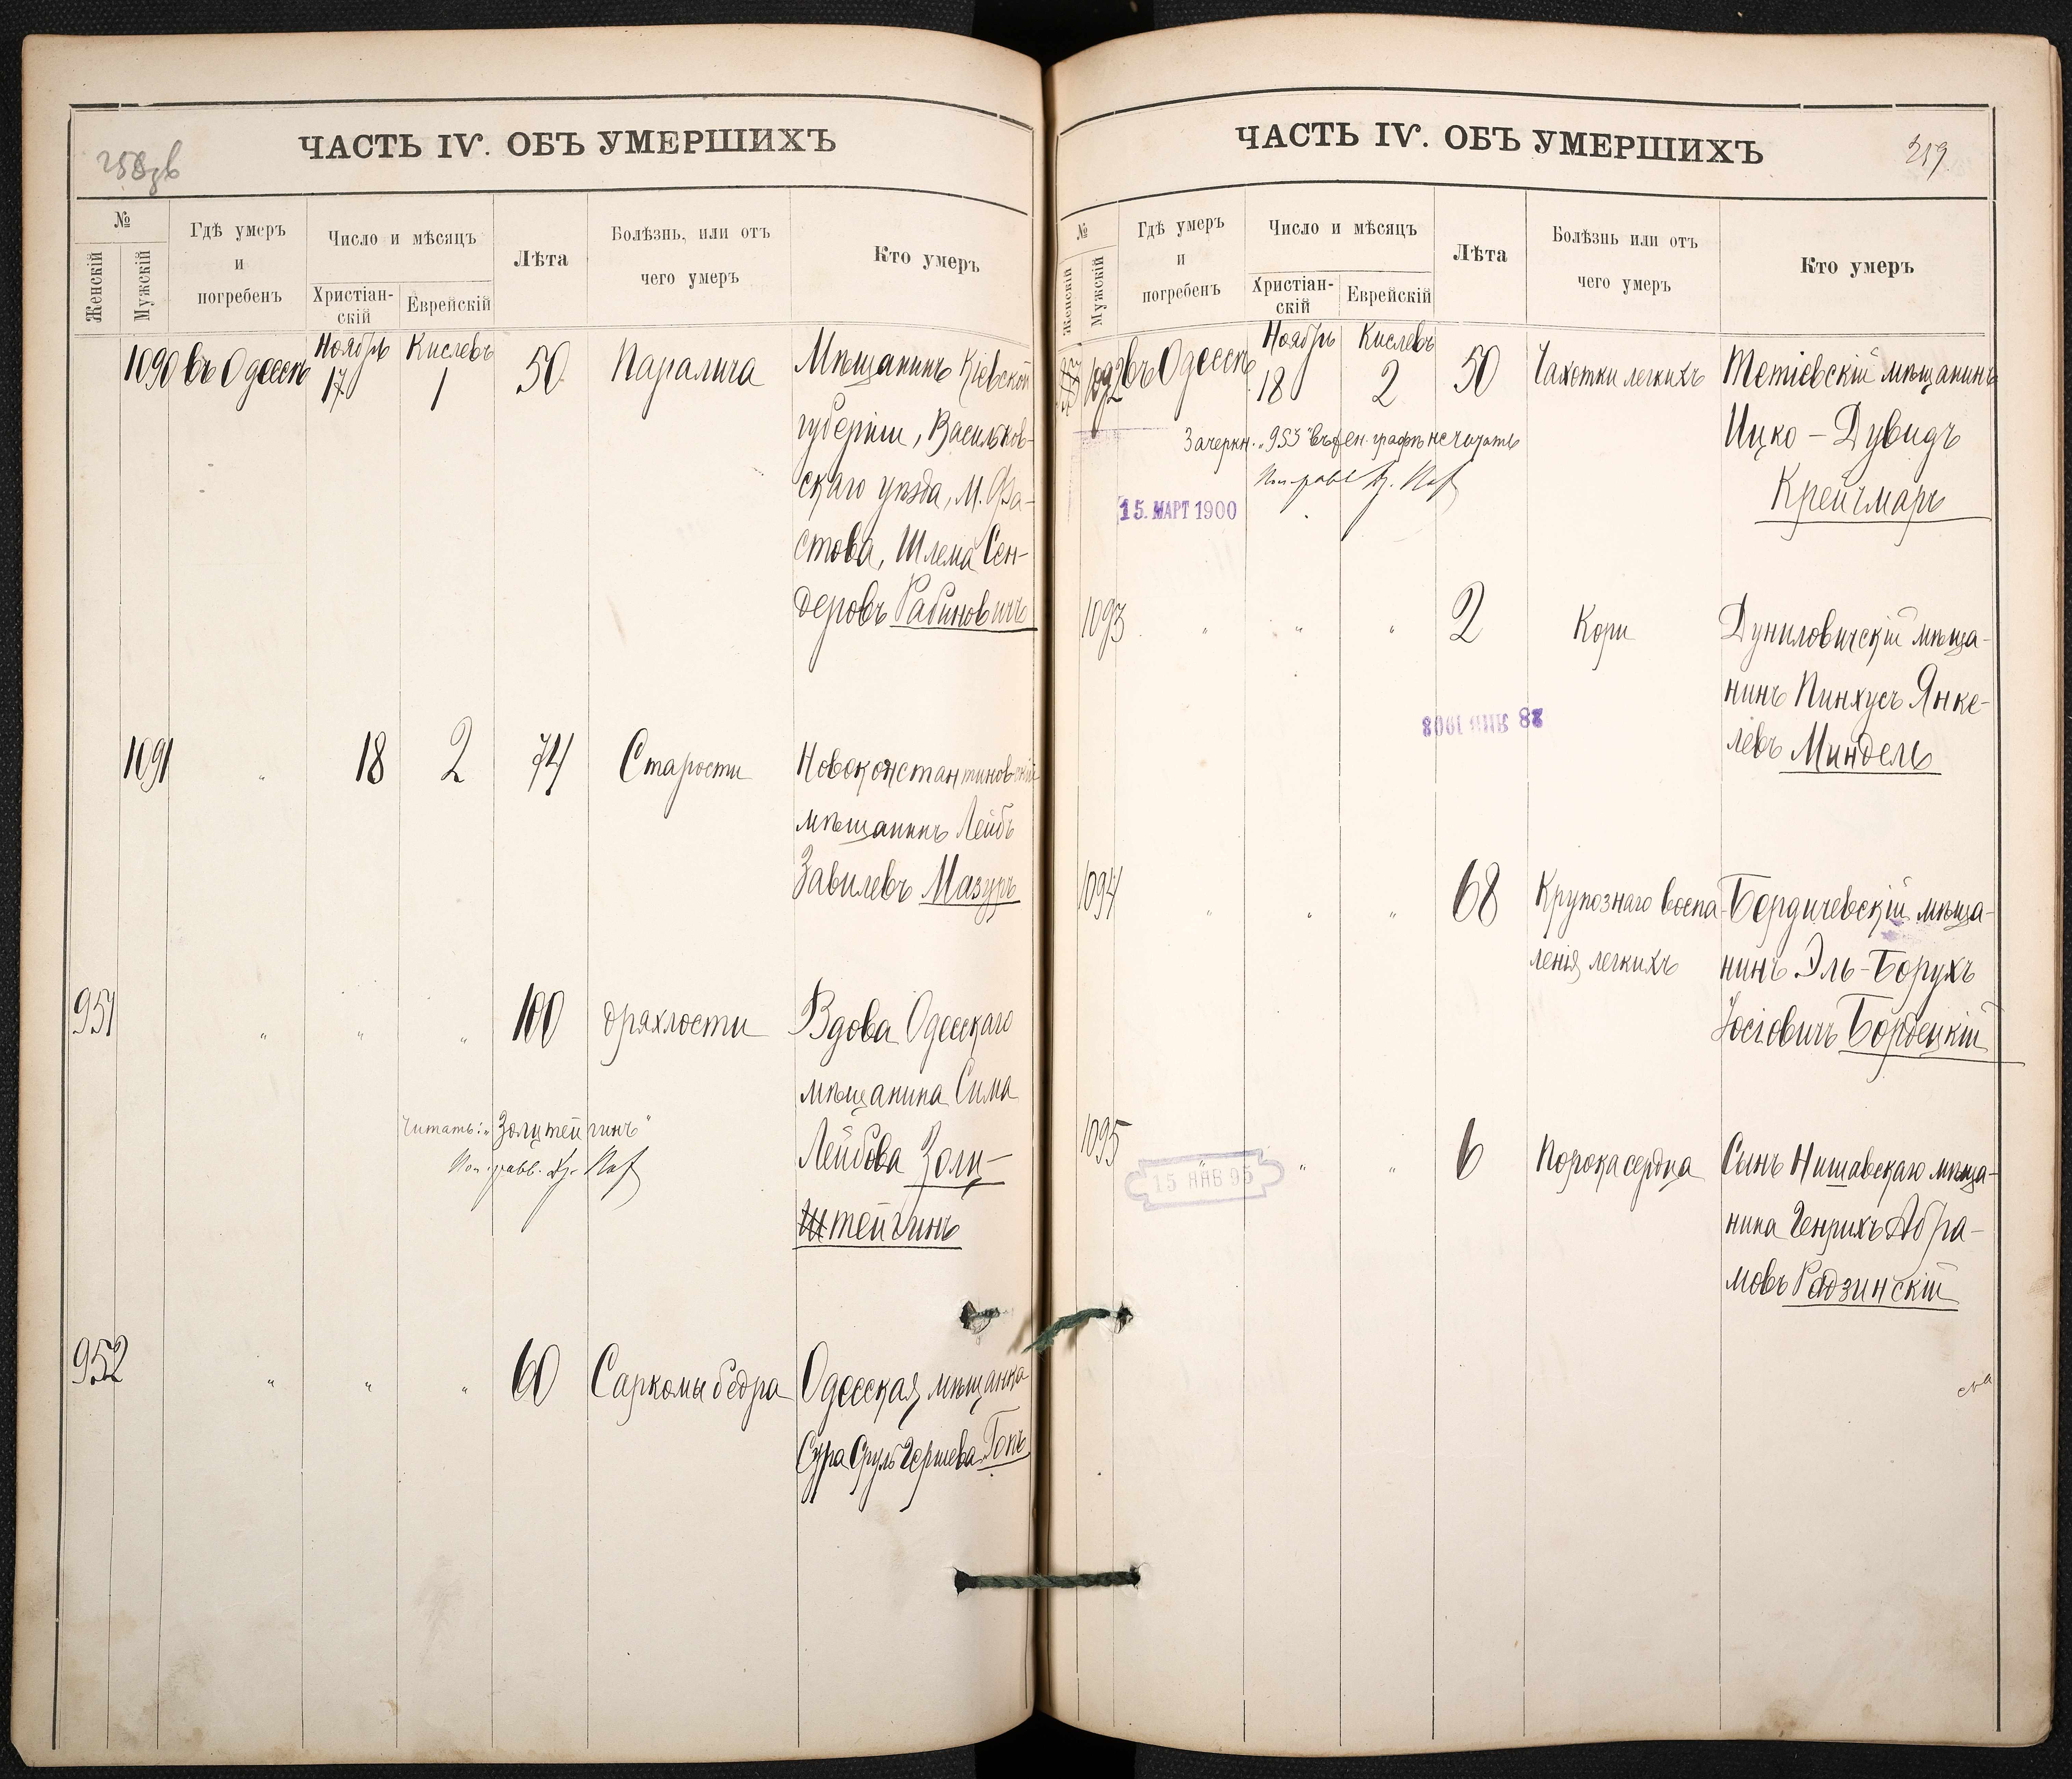 ЧАСТЬ IV. ОБЪ УМЕРШИХЪ
№
Женскій
Мужскій
Гдѣ умеръ
и
погребенъ
Число и мѣсяцъ
Христіан-
скій
Еврейскій
Лѣта
Болѣзнь, или отъ
чего умеръ
Кто умеръ
1090 въ Одессѣ Ноябрь 17 Кислевъ 1 50 Паралича Мѣщанинъ Кіевской
губерніи, Васильков-
скаго уѣзда, м. Фа-
стова, Шлема Сен-
деровъ Рабиновичъ
1091 " 18 2 74 Старости Новоконстантиновскій
мѣщанинъ Лейбъ
Завилевъ Мазуръ
951 " " " 100 дряхлости Вдова Одесскаго
мѣщанина Сима
Лейбова Золц-
штейгинъ
Читать: "Золцтейгинъ"
952 " " " 60 Саркомы бедра Одесская мѣщанка
Сура Сруль Гершева Гопъ
ЧАСТЬ IV. ОБЪ УМЕРШИХЪ
259.
№
Женскій
Мужскій
Гдѣ умеръ
и
погребенъ
Число и мѣсяцъ
Христіан-
скій
Еврейскій
Лѣта
Болѣзнь или отъ
чего умеръ
Кто умеръ
1092 въ Одессѣ Ноябрь 18 Кислевъ 2 50 Чахотки легкихъ Тетіевскій мѣщанинъ
Ицко - Дувидъ
Крейчмаръ
Зачеркн. "953" въ жен. графѣ не читать
15. МАРТ 1900
1093 " " " 2 Кори Дуниловичскій мѣща-
нинъ Пинхусъ Янке-
левъ Миндель
28 ЯНВ 1908
1094 " " " 68 Крупознаго воспа-
ленія легкихъ
Бердичевскій мѣща-
нинъ Эль-Борухъ
Іосіовичъ Бордецкій
1095 " " " 6 Порока сердца Сынъ Нишавскаго мѣща-
нина Генрихъ Абра-
мовъ Радзинскій
15 ЯНВ 95